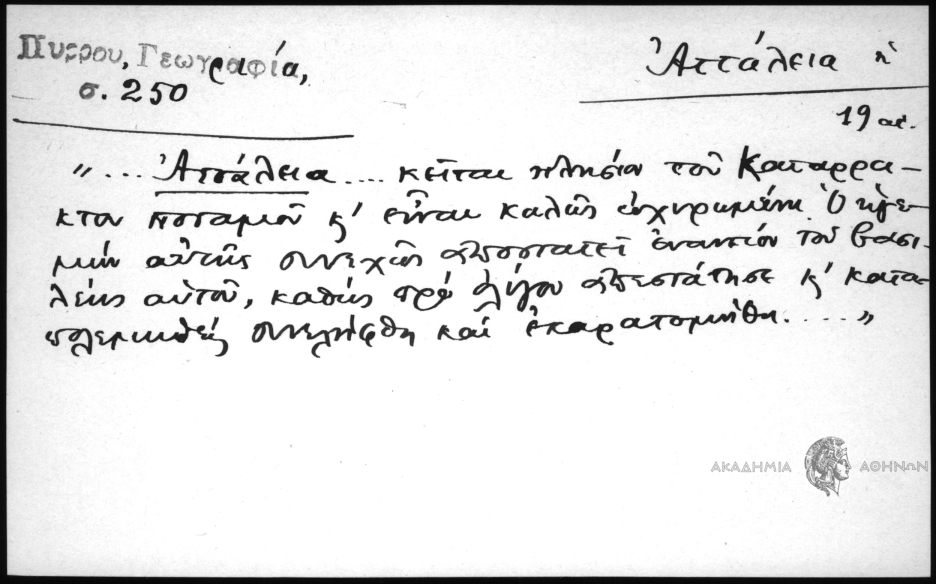 Πυρρου, Γεωγραφία,
σ. 250
Ἀττάλεια ἡ
19 αἰ.
„ ... Ἀττάλεια .... κεῖται πλησίον τοῦ Καταρρά-
κτου ποταμοῦ κ' εἶναι καλῶς ὠχυρωμένη. Ὁ ἡγε-
μὼν αὐτῆς συνεχῶς ἀποστατεῖ ἐναντίον τοῦ βασι-
λέως αὐτοῦ, καθὼς πρὸ ὀλίγου ἀπεστάτησε κ' κατα-
πολεμηθεὶς συνελήφθη καὶ ἐκαρατομήθη..... „
ΑΚΑΔΗΜΙΑ ΑΘΗΝΩΝ